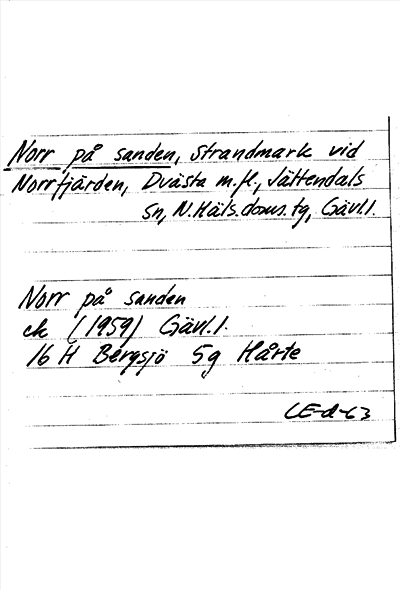 Norr på sanden, strandmark vid
Norrfjärden, Dvästa m.fl., Jättendals
sn, N.Häls.doms.tg, Gävl.l.
Norr på sanden
ek (1959) Gävl.l.
16 H Bergsjö 5g Hårte
CE-d-63